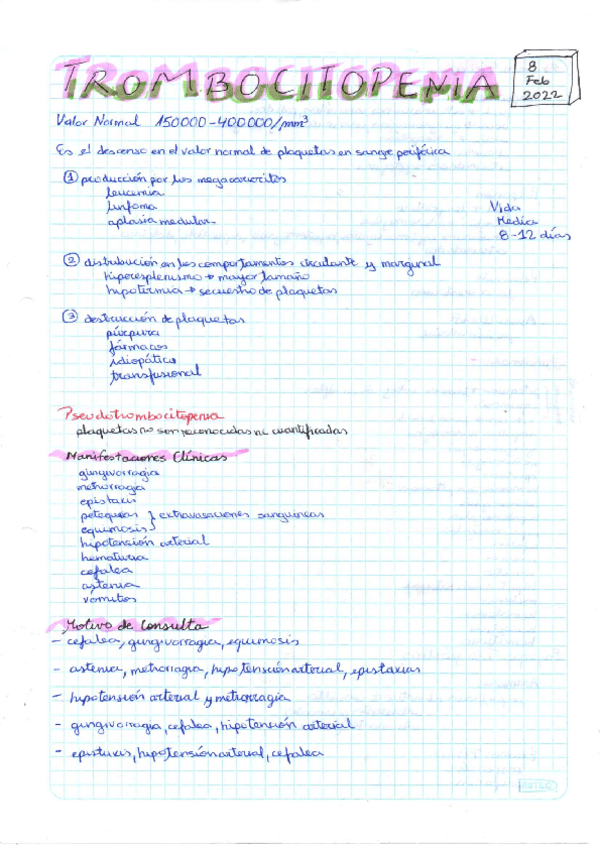 TROMBOCITOPENIA
8
Feb
2022
Valor Normal 150000-400000/mm³
Es el descenso en el valor normal de plaquetas en sangre periférica
① producción por los megacariocitos
leucemia
linfoma
aplasia medular
Vida
Media
8-12 días
② distribución en los compartamentos circulante y marginal
hiperesplenismo → mayor tamaño
hipotermia → secuestro de plaquetas
③ destrucción de plaquetas
púrpura
fármacos
idiopático
transfusional
Pseudotrombocitopenia
plaquetas no son reconocidas ni cuantificadas
Manifestaciones Clínicas
gingivorragia
metrorragia
epistaxis
petequias } extravasaciones sanguineas
equimosis
hipotensión arterial
hematuria
cefalea
astenia
vómitos
Motivo de Consulta
- cefalea, gingivorragia, equimosis
- astenia, metrorragia, hipotensión arterial, epistaxis
- hipotensión arterial y metrorragia
- gingivorragia, cefalea, hipotensión arterial
- epistaxis, hipotensión arterial, cefalea